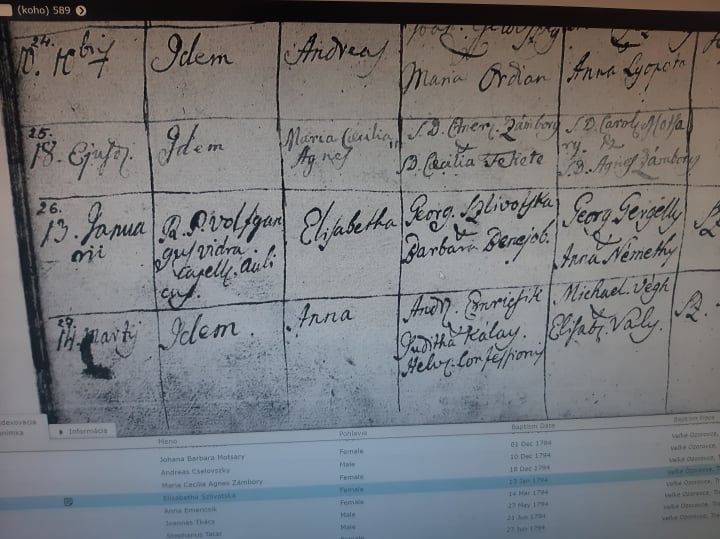 (koho) 589
24.
10. Xbris 7 Idem Andreas
Maria Ordian Anna Lyopota
25.
18. Ejusd. Idem Maria Cæcilia
Agnes
S. D. Emer. Zámbory
&
D. Cæcilia Fekete
S. D. Carol. Motsa
ry. &
S. D. Agnes Zámbory
26.
13. Janua
rii
R. P. Volfgan
gus vidra
Capell. Auli
cus.
Elisabetha
Georg. Szlivotska
&
Barbara Benejob.
Georg Gergelly
&
Anna Némethy
14. Martij Idem. Anna
Andr. Emricsik
&
Juditha Kálay.
Helv. Confessionis
Michael. Vegh
&
Elisab. Valy.
Informácia
Meno Pohlavie Baptism Date
Johana Barbara Motsary Female 01 Dec 1794
Andreas Cselovszky Male 10 Dec 1794 Veľké Ozorovce,
Maria Cecilia Agnes Zámbory Female 18 Dec 1794 Veľké Ozorovce,
Elisabetha Szlivotska Female 13 Jan 1794 Veľké Ozorovce,
Anna Emericsik Female 14 Mar 1794 Veľké Ozorovce,
Joannes Tkács Male 27 May 1794 Veľké Ozorovce,
Stephanus Tatar Male 21 Jun 1794